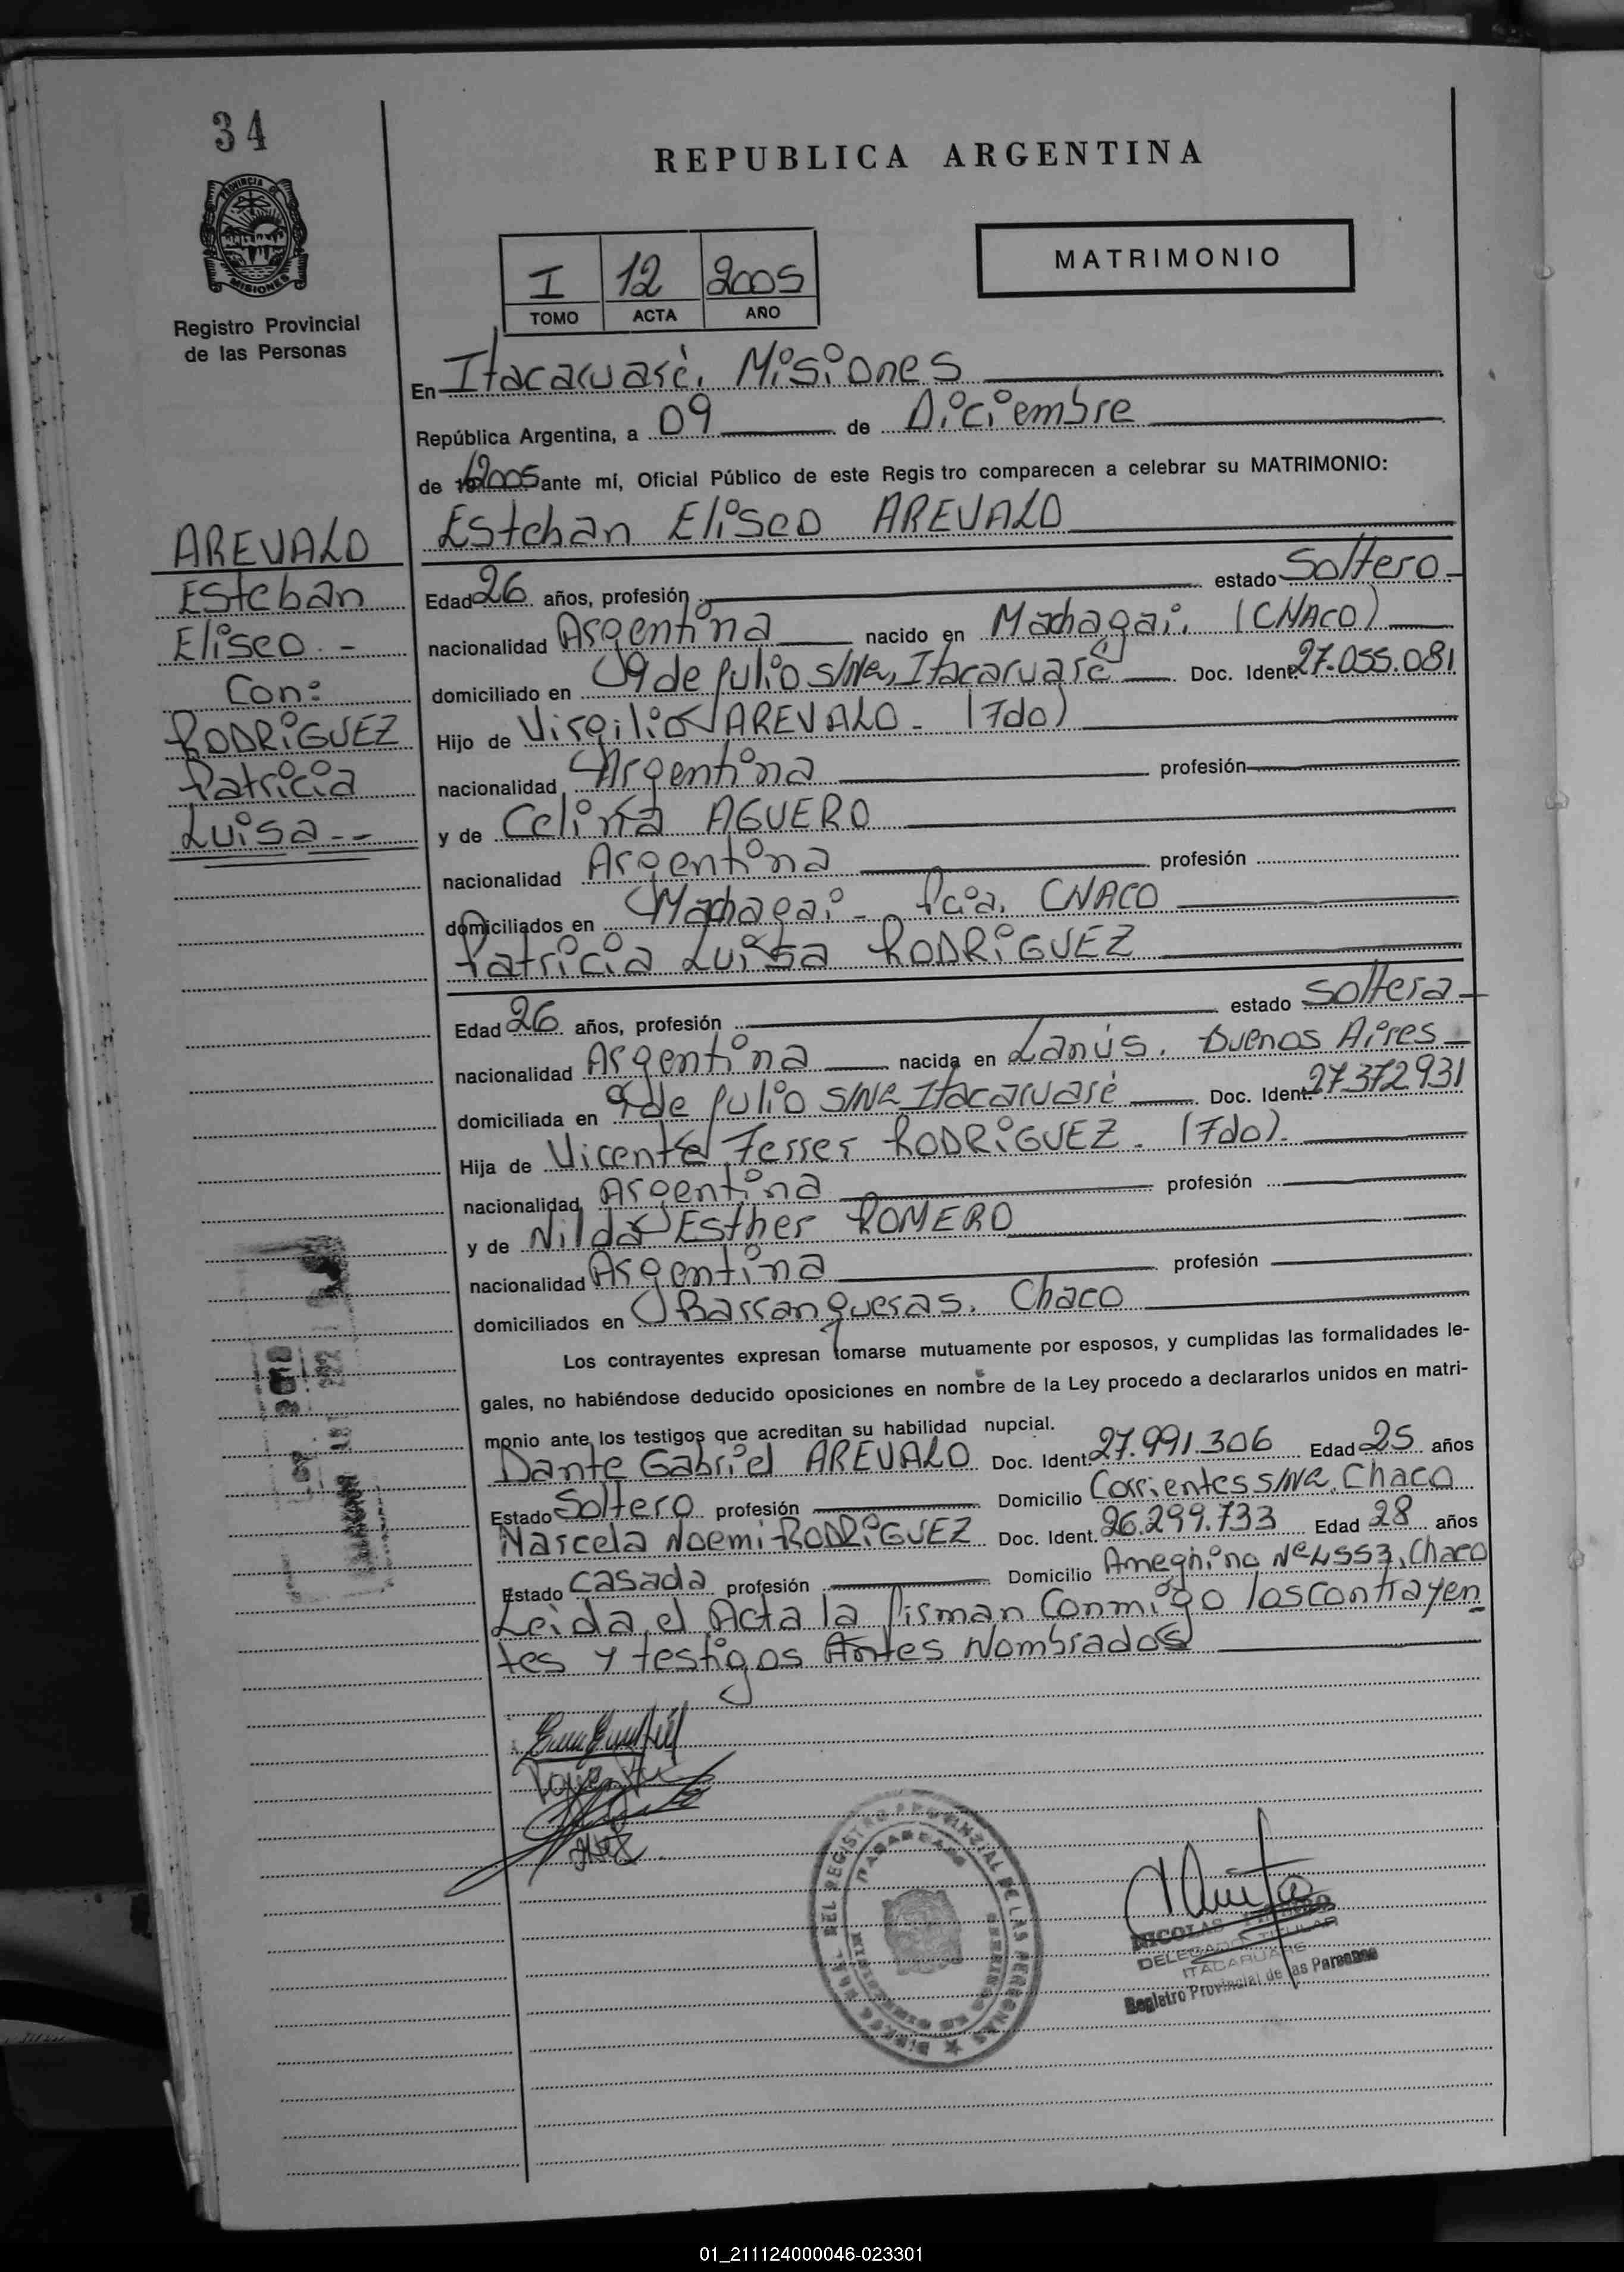 34
REPUBLICA ARGENTINA
MATRIMONIO
I 12 2005
TOMO ACTA AÑO
PROVINCIA DE
MISIONES
Registro Provincial
de las Personas
En Itacaruaré. Misiones
República Argentina, a 09 de Diciembre
de 2005 ante mí, Oficial Público de este Regis tro comparecen a celebrar su MATRIMONIO:
Esteban Eliseo AREVALO
AREVALO
Esteban
Eliseo. -
Con:
RODRiGUEZ
Patricia
Luisa--
Edad 26 años, profesión estado Soltero
nacionalidad Argentina nacido en Machagai. (CHACO)
domiciliado en 9 de julio s/Nº, Itacaruaré Doc. Ident. 27.055.081
Hijo de Virgilio AREVALO - (Fdo)
nacionalidad Argentina profesión
y de Celinta AGUERO
nacionalidad Argentina profesión
domiciliados en Machagai - Pcia. CHACO
Patricia Luisa RODRiGUEZ
Edad 26 años, profesión estado soltera
nacionalidad Argentina nacida en Lanús. Buenos Aires
domiciliada en 9 de julio S/Nº Itacaruaré Doc. Ident. 27372931
Hija de Vicente Ferrer RODRiGUEZ. (Fdo).
nacionalidad Argentina profesión
y de Nilda Esther ROMERO
nacionalidad Argentina profesión
domiciliados en Barranqueras. Chaco
Los contrayentes expresan tomarse mutuamente por esposos, y cumplidas las formalidades le-
gales, no habiéndose deducido oposiciones en nombre de la Ley procedo a declararlos unidos en matri-
monio ante los testigos que acreditan su habilidad nupcial.
Dante Gabriel AREVALO Doc. Ident. 27.991.306 Edad 25 años
Estado Soltero profesión Domicilio Corrientes s/Nº. Chaco
Marcela Noemi RODRiGUEZ Doc. Ident. 26.299.733 Edad 28 años
Estado Casada profesión Domicilio Ameghino Nº 4553, Chaco
Leida el Acta la firman Conmigo los contrayen
tes y testigos Antes Nombrados
REGISTRO PROVINCIAL DE LAS PERSONAS
NICOLAS
DELEGADO TITULAR
ITACARUARE
Registro Provincial de las Personas
01_211124000046-023301